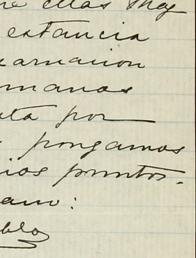 re ellas hay
estancia
arnacion
manos
ta por
pongamos
ios puntos.
am:
blo